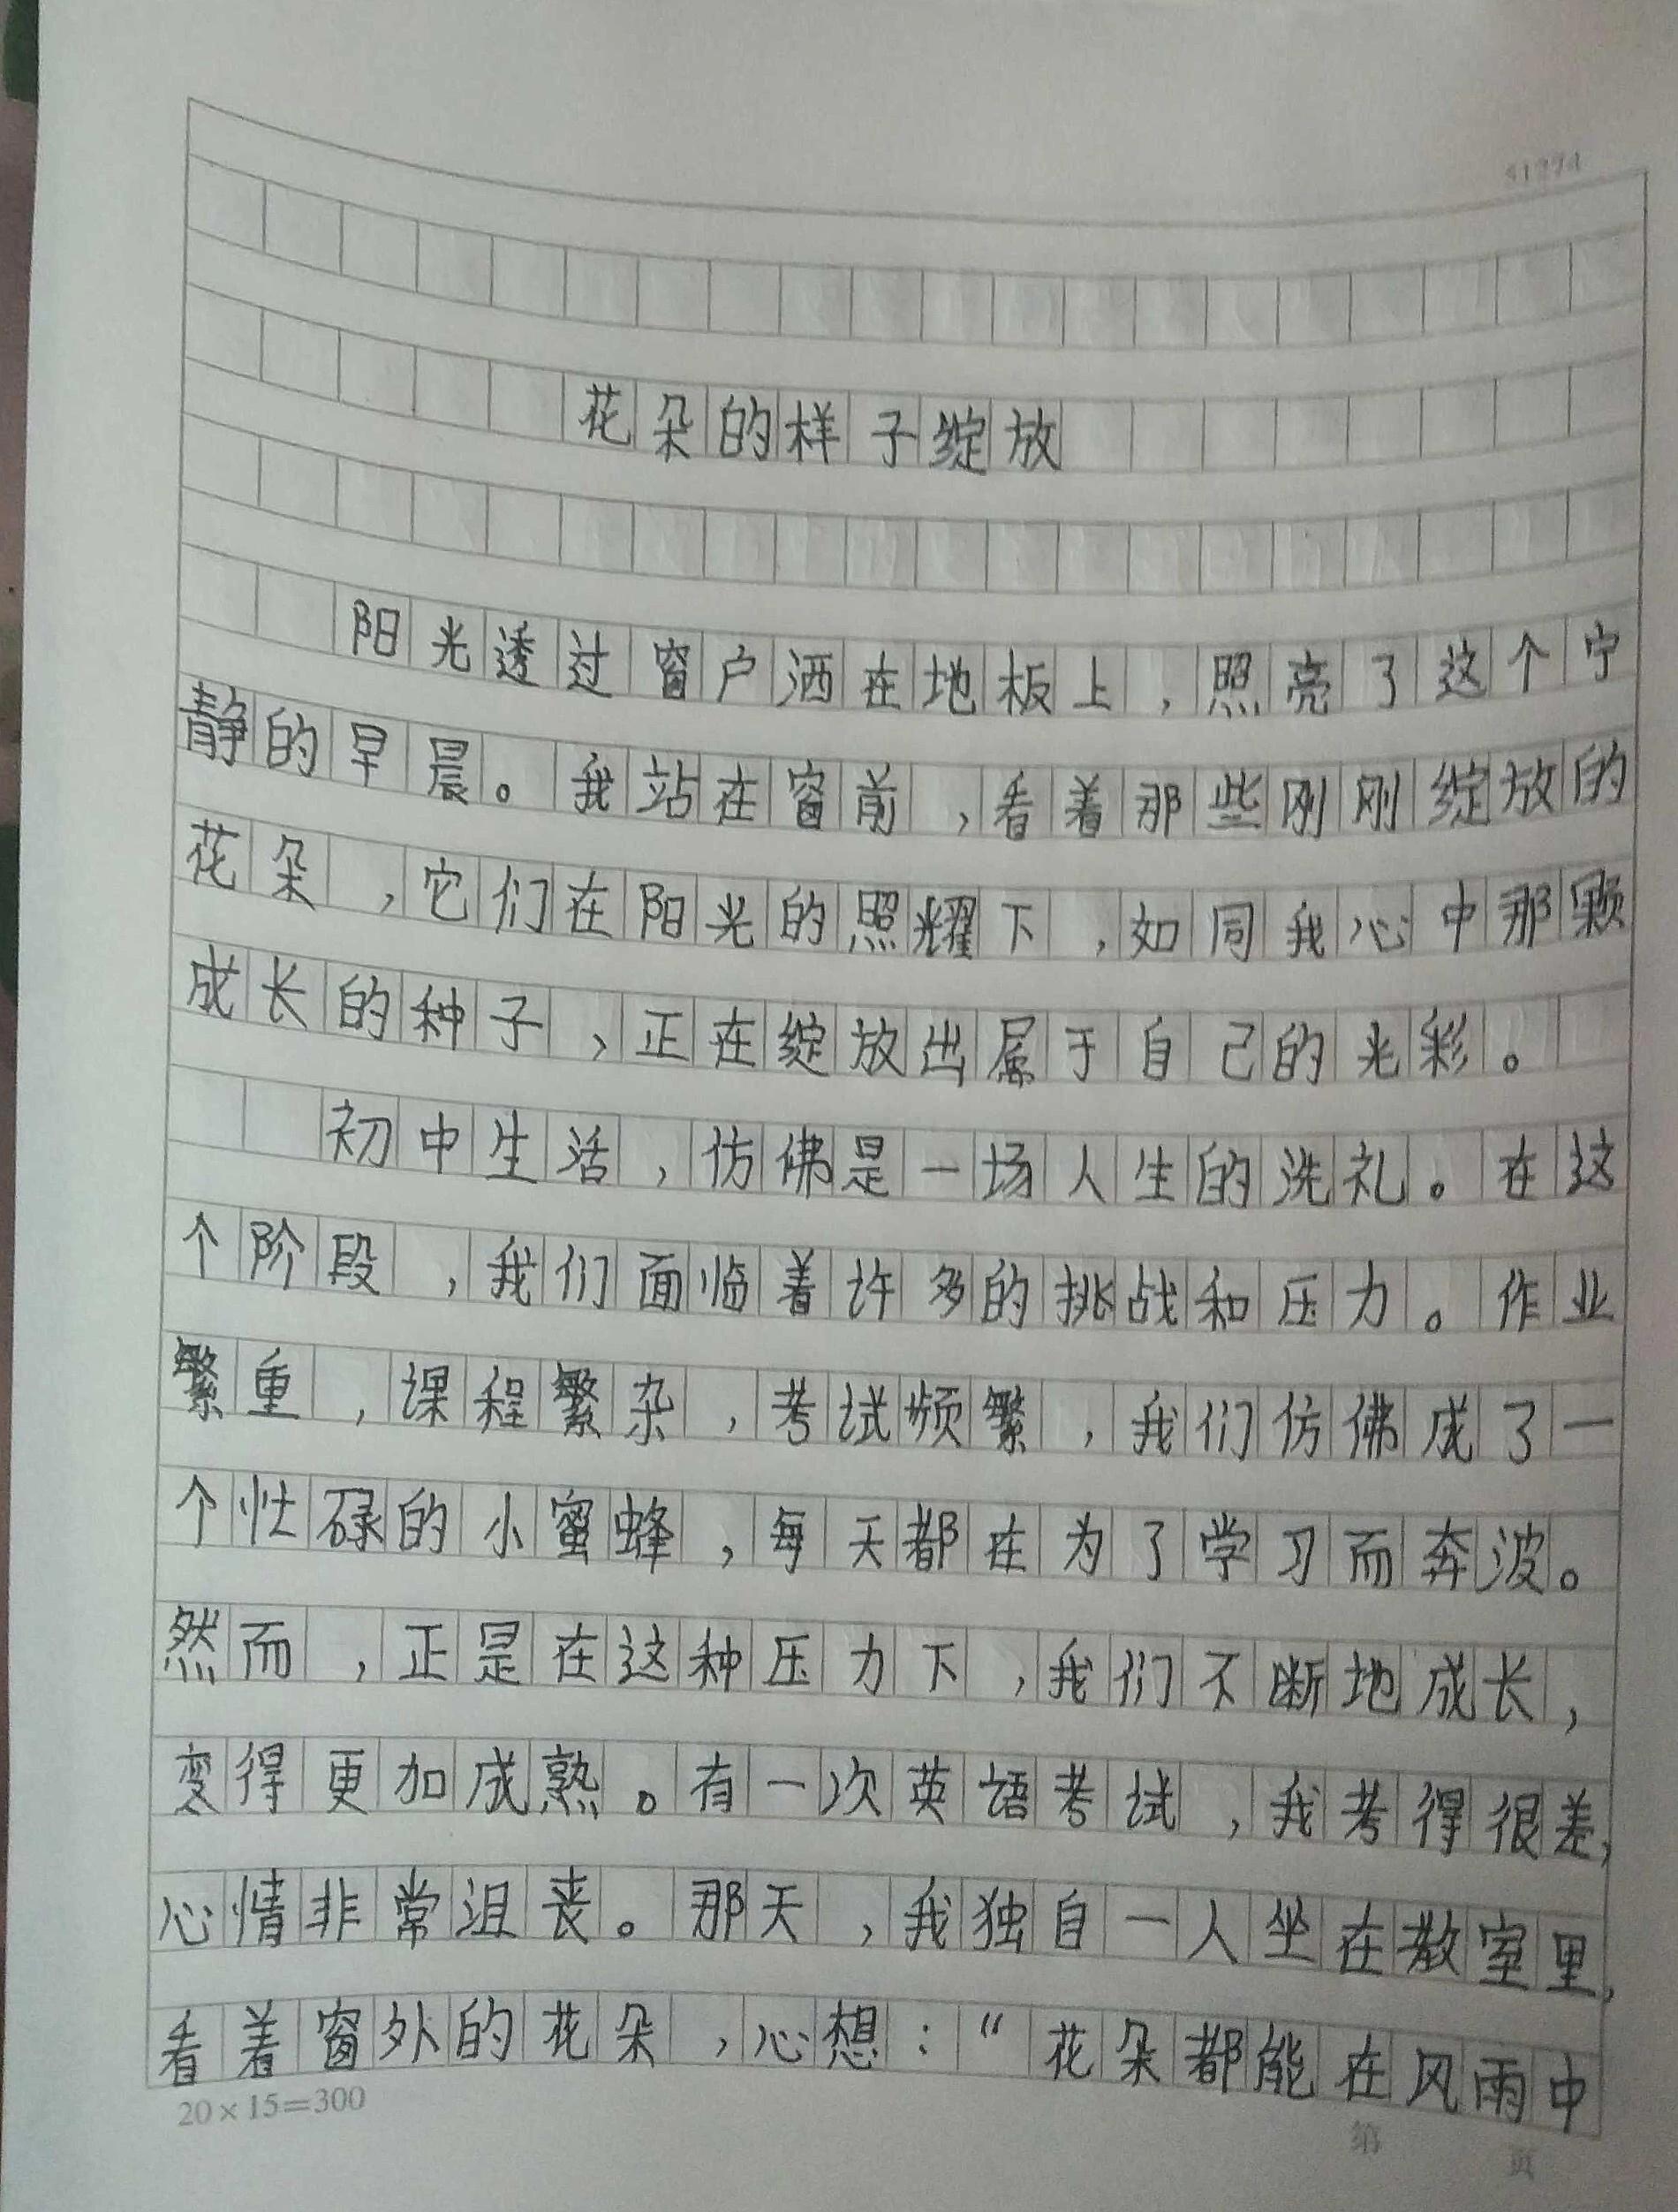 51274
花朵的样子绽放
阳光透过窗户洒在地板上，照亮了这个宁
静的早晨。我站在窗前，看着那些刚刚绽放的
花朵，它们在阳光的照耀下，如同我心中那颗
成长的种子，正在绽放出属于自己的光彩。
初中生活，仿佛是一场人生的洗礼。在这
个阶段，我们面临着许多的挑战和压力。作业
繁重，课程繁杂，考试频繁，我们仿佛成了一
个忙碌的小蜜蜂，每天都在为了学习而奔波。
然而，正是在这种压力下，我们不断地成长，
变得更加成熟。有一次英语考试，我考得很差，
心情非常沮丧。那天，我独自一人坐在教室里，
看着窗外的花朵，心想：“花朵都能在风雨中
20×15=300
第 页